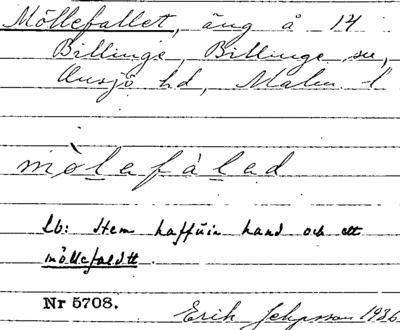 Möllefallet, äng å 14
Billinge, Billinge sn,
Onsjö hd, Malm. l
mòlafàlad
Lb: Item haffuer hand och ett
möllefaldtt.
Nr 5708.
Erik 1936